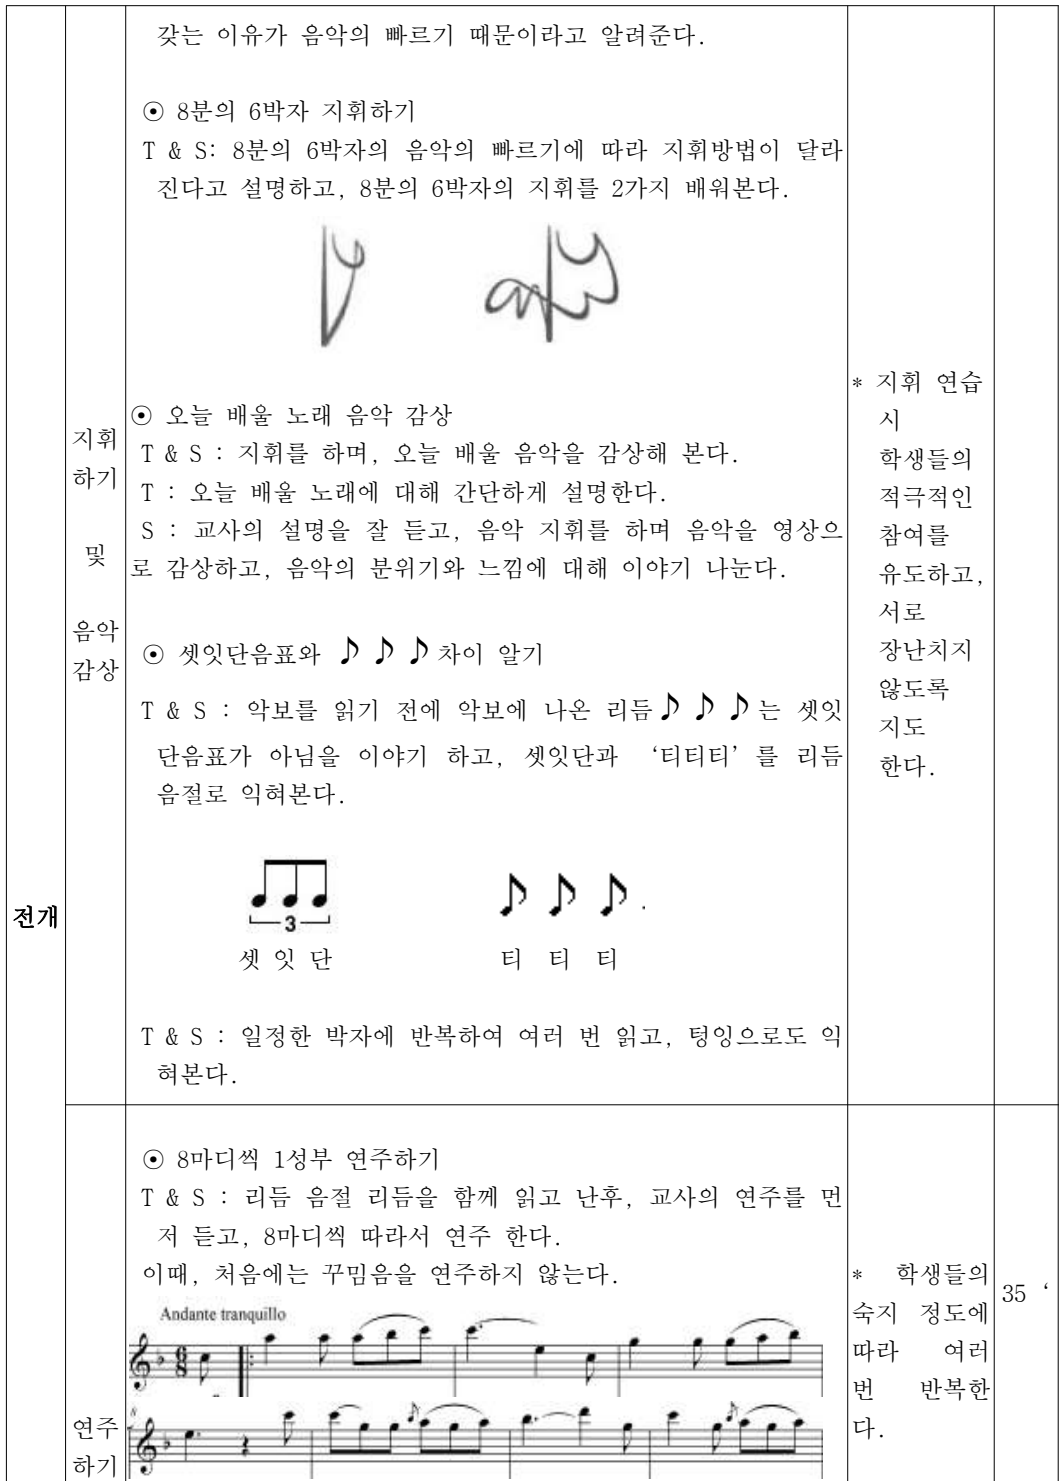 갖는 이유가 음악의 빠르기 때문이라고 알려준다.
⊙ 8분의 6박자 지휘하기
T & S: 8분의 6박자의 음악의 빠르기에 따라 지휘방법이 달라
진다고 설명하고, 8분의 6박자의 지휘를 2가지 배워본다.
⊙ 오늘 배울 노래 음악 감상
T & S : 지휘를 하며, 오늘 배울 음악을 감상해 본다.
T : 오늘 배울 노래에 대해 간단하게 설명한다.
S : 교사의 설명을 잘 듣고, 음악 지휘를 하며 음악을 영상으
로 감상하고, 음악의 분위기와 느낌에 대해 이야기 나눈다.
⊙ 셋잇단음표와 ♪ ♪ ♪ 차이 알기
T & S : 악보를 읽기 전에 악보에 나온 리듬 ♪ ♪ ♪ 는 셋잇
단음표가 아님을 이야기 하고, 셋잇단과 ‘티티티’를 리듬
음절로 익혀본다.
3
셋 잇 단
♪ ♪ ♪ .
티 티 티
T & S : 일정한 박자에 반복하여 여러 번 읽고, 텅잉으로도 익
혀본다.
전개
지휘
하기
및
음악
감상
* 지휘 연습
시
학생들의
적극적인
참여를
유도하고,
서로
장난치지
않도록
지도
한다.
⊙ 8마디씩 1성부 연주하기
T & S : 리듬 음절 리듬을 함께 읽고 난후, 교사의 연주를 먼
저 듣고, 8마디씩 따라서 연주 한다.
이때, 처음에는 꾸밈음을 연주하지 않는다.
Andante tranquillo
6
8
8
연주
하기
* 학생들의
숙지 정도에
따라 여러
번 반복한
다.
35 ‘